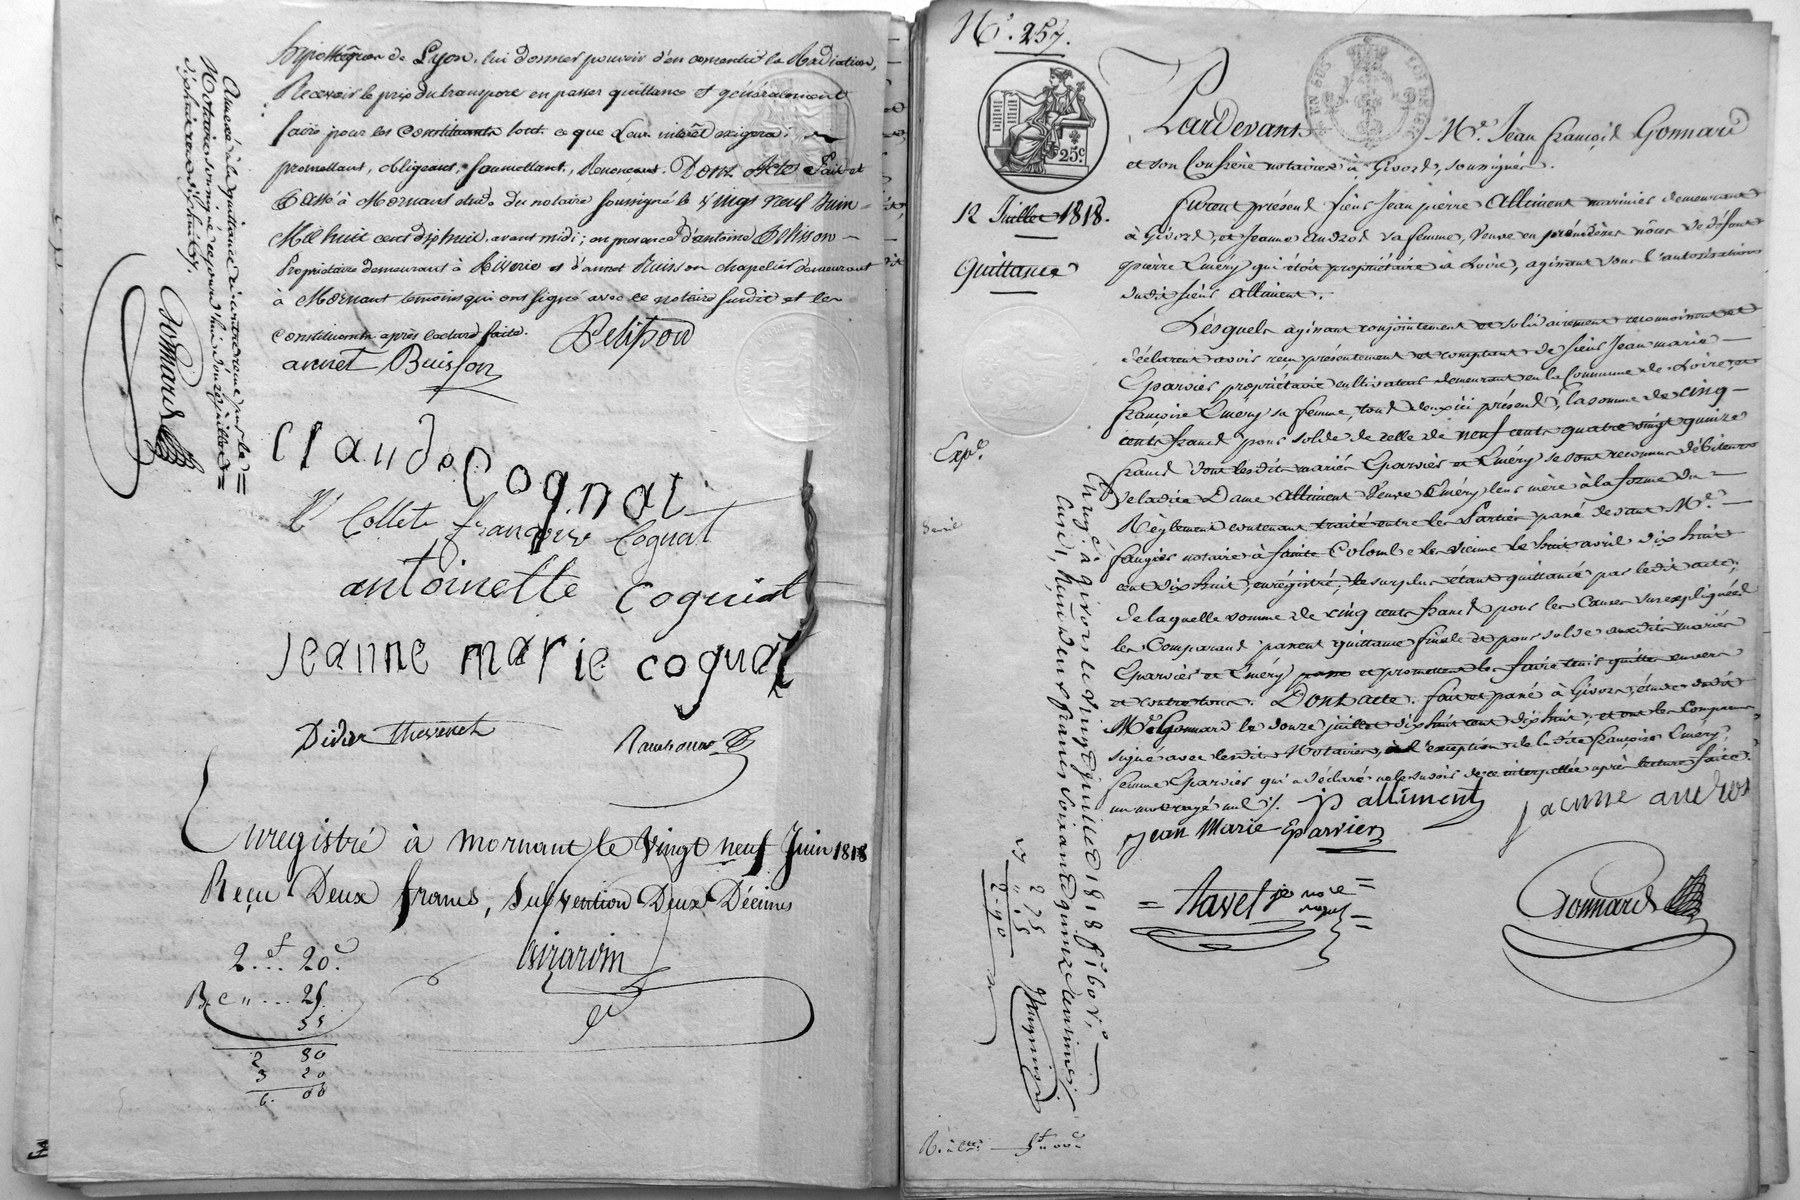 hipothéques de Lyon, lui donner pouvoir d'en consentir la Radiation,
Recevoir le prix du transport en passer quittance et généralement
faire pour les Constituants tout ce que leur intérêt exigera;
promettant, obligeant, soumettant, Renonçant. Dont Acte Fait et
Passé à Mornant étude du notaire soussigné le vingt neuf Juin
Mille huit cent dix huit, avant midi; en presence d'antoine Pelisson
Proprietaire demeurant à et d'annet Buisson chapelier demeurant
à Mornant temoins qui ont signé avec le notaire susdit et les
Constituants après lecture faite.
Pelisson
annet Buisson
Claude Cognat
Collet françoise Cognat
antoinette cognat
jeanne marie cognat
Didier thevenet
Enregistré à mornant le vingt neuf Juin 1818
Reçu Deux francs, Subvention Deux Décimes
Girardin
2.f.. 20.c
25
55
2 80
3 20
6. 00
Annexé à la quittance ci contre reçue par le
Notaire soussigné cejourd'hui douze juillet
dix huit cent dix huit.
Gonnard
N.º 257.
25c
12 Juillet 1818.
Quittance
Exp.é
Pardevant M.e Jean François Gonnard
et son Confrère notaires à Givors, soussignés.
Furent présens sieur Jean pierre Alliment marinier demeurant
à Givors, et Jeanne Androt sa femme, Veuve en premières nôces de défunt
pierre Eméry qui étoit propriétaire à Loire, agissant sous l'autorisation
dudit sieur Alliment.
Lesquels agissant conjointement et solidairement reconnoissent et
déclarent avoir reçu présentement et comptant de sieur Jean marie
Eparvier propriétaire cultivateur demeurant en la Commune de Loire, et
françoise Eméry sa femme, tous deux ici présens, la somme de cinq
cents francs pour solde de celle de neuf cents quatre vingt quinze
francs dont lesdits mariés Eparvier et Eméry se sont reconnus débiteurs
de ladite Dame Alliment Veuve Eméry leur mère à la forme du
Règlement contenant traité entre les Parties passé devant M.e
faugier notaire à Sainte Colombe les Vienne le huit avril dix huit
cent dix huit, enrégistré; le surplus étant quittancé par ledit acte;
de laquelle somme de cinq cents francs pour les Causes sus expliquées
les Comparans passent quittance finale et pour solde auxdits mariés
Eparvier et Eméry et promettent les faire tenir quitte envers
et contre tous. Dont acte. fait et passé à Givors, étude dudit
M.e Gonnard le douze juillet dix huit cent dix huit; et ont les Comparans
signé avec lesdits Notaires, à l'exception de la dite françoise Eméry,
femme Eparvier qui a déclaré ne le savoir de ce interpellée après lecture faite.
un mot rayé nul ./.
jp alliment
jacinne androt
Jean Marie Eparvier
= Favel
Gonnard
Enrg.é à Givors le vingt juillet 1818 f.º 60 v.º
Cas. 1, Reçu deux francs soixante quinze centimes
2 75